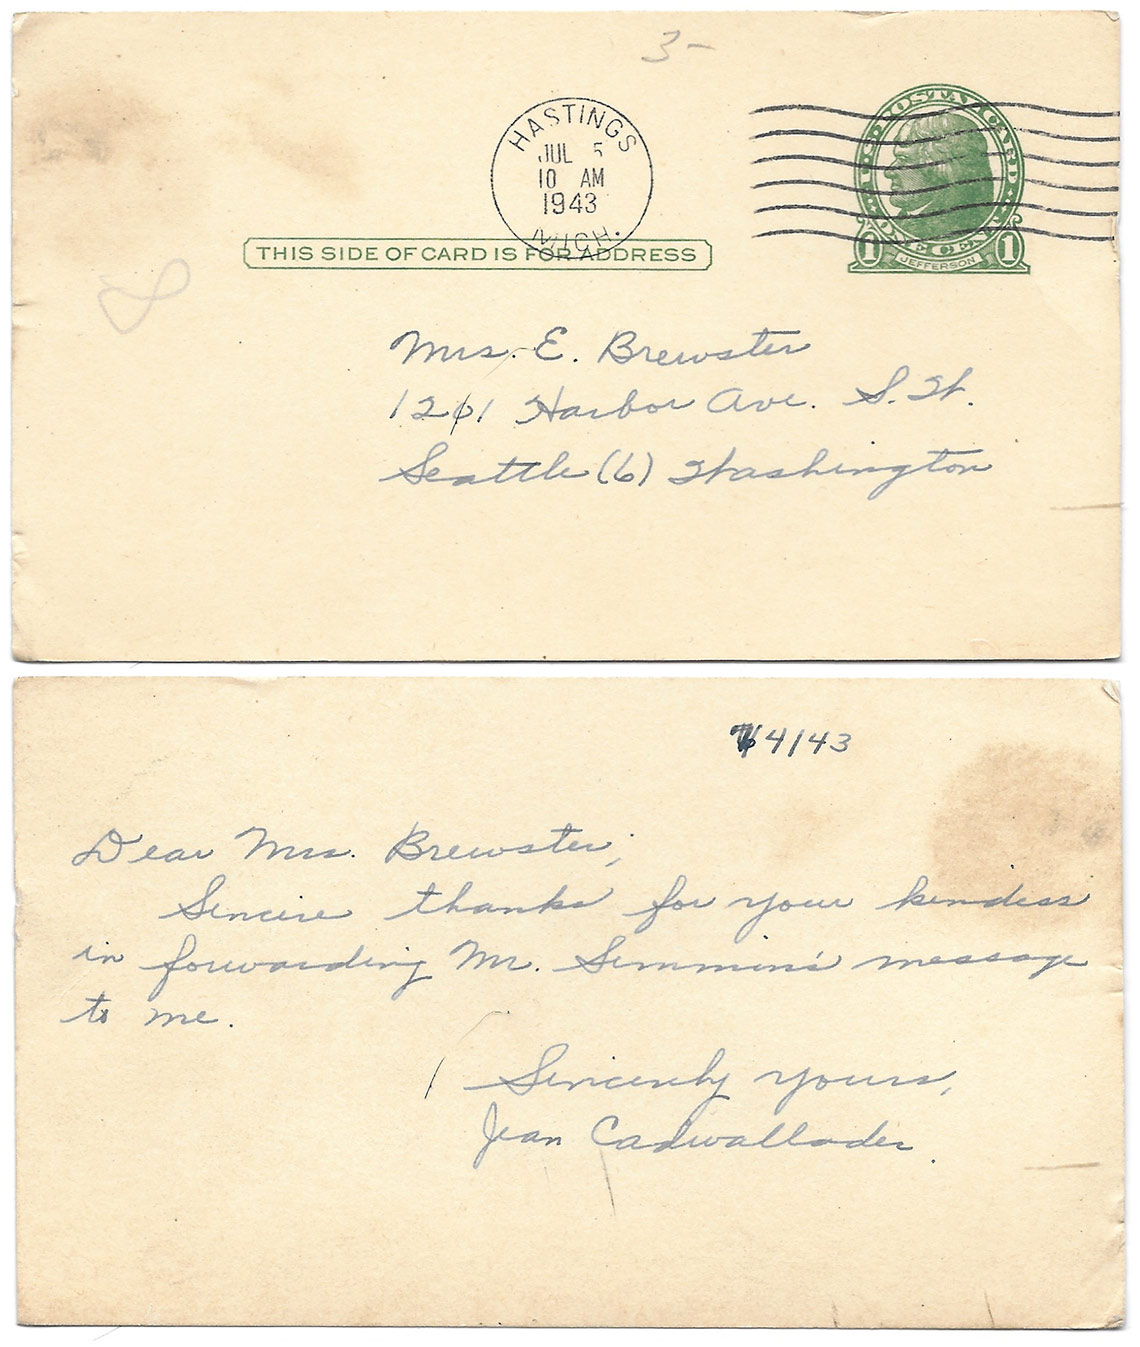 3-
HASTINGS
JUL 5
10 AM
1943
MICH.
U.S. POSTAL CARD
ONE CENT
1 JEFFERSON 1
THIS SIDE OF CARD IS FOR ADDRESS
Mrs. E. Brewster
1261 Harbor Ave. S.W.
Seattle (6) Washington
7/4/43
Dear Mrs. Brewster,
Sincere thanks for your kindess
in forwarding Mr. Simmin's message
to me.
Sincerely yours,
Jean Cadwallader.